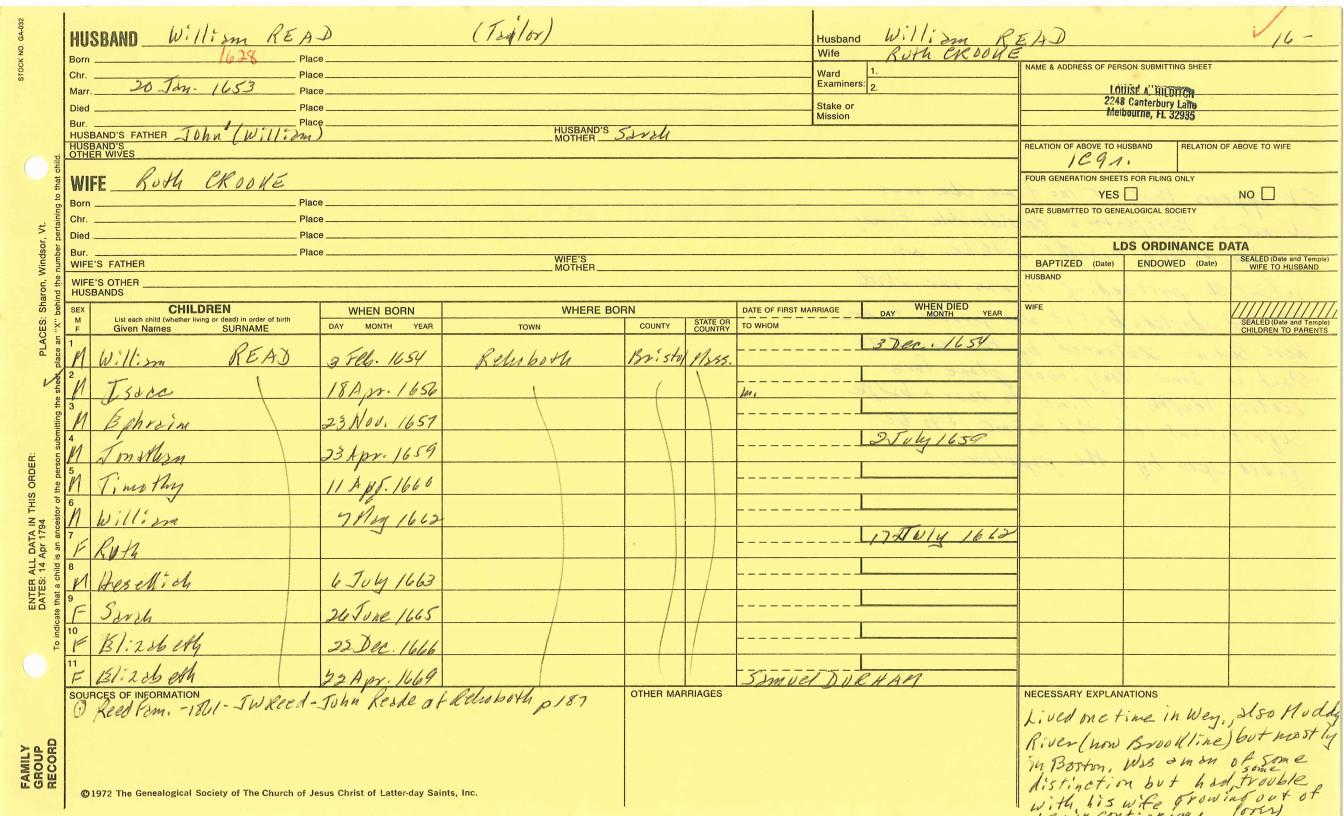 STOCK NO. GA-032
HUSBAND William READ (Tailor)
Born 1628 Place
Chr. Place
Marr. 20 Jan. 1653 Place
Died Place
Bur. Place
HUSBAND'S FATHER John (William) HUSBAND'S MOTHER Sarah
HUSBAND'S OTHER WIVES
WIFE Ruth CROOKE
Born Place
Chr. Place
Died Place
Bur. Place
WIFE'S FATHER WIFE'S MOTHER
WIFE'S OTHER HUSBANDS
Husband William READ 16-
Wife Ruth CROOKE
Ward Examiners: 1.
2.
Stake or Mission
NAME & ADDRESS OF PERSON SUBMITTING SHEET
LOUISE A. HILDITCH
2248 Canterbury Lane
Melbourne, FL 32935
RELATION OF ABOVE TO HUSBAND RELATION OF ABOVE TO WIFE
1C9r.
FOUR GENERATION SHEETS FOR FILING ONLY
YES NO
DATE SUBMITTED TO GENEALOGICAL SOCIETY
LDS ORDINANCE DATA
BAPTIZED (Date) ENDOWED (Date) SEALED (Date and Temple) WIFE TO HUSBAND
HUSBAND
WIFE
SEALED (Date and Temple) CHILDREN TO PARENTS
SEX M F
CHILDREN
List each child (whether living or dead) in order of birth
Given Names SURNAME
WHEN BORN
DAY MONTH YEAR
WHERE BORN
TOWN COUNTY STATE OR COUNTRY
DATE OF FIRST MARRIAGE
TO WHOM
WHEN DIED
DAY MONTH YEAR
1 M William READ 3 Feb. 1654 Rehoboth Bristol Mass. 3 Dec. 1654
2 M Isaac 18 Apr. 1656 m.
3 M Ephraim 23 Nov. 1657
4 M Jonathan 23 Apr. 1659 2 July 1659
5 M Timothy 11 Apr. 1660
6 M William 7 May 1662
7 F Ruth 17 July 1662
8 M 6 July 1663
9 F Sarah 26 June 1665
10 F Elizabeth 22 Dec. 1666
11 F Elizabeth 22 Apr. 1669 Samuel DURHAM
SOURCES OF INFORMATION
① Reed Fam. -1861- JW Reed - John Reade at Rehoboth p187
OTHER MARRIAGES
NECESSARY EXPLANATIONS
Lived one time in Wey., also Muddy
River (now Brookline) but mostly
in Boston. Was a man of some
distinction but had some trouble
with his wife growing out of
©1972 The Genealogical Society of The Church of Jesus Christ of Latter-day Saints, Inc.
PLACES: Sharon, Windsor, Vt.
ENTER ALL DATA IN THIS ORDER:
DATES: 14 Apr 1794
To indicate that a child is an ancestor of the person submitting the sheet, place an "X" behind the number pertaining to that child.
FAMILY GROUP RECORD